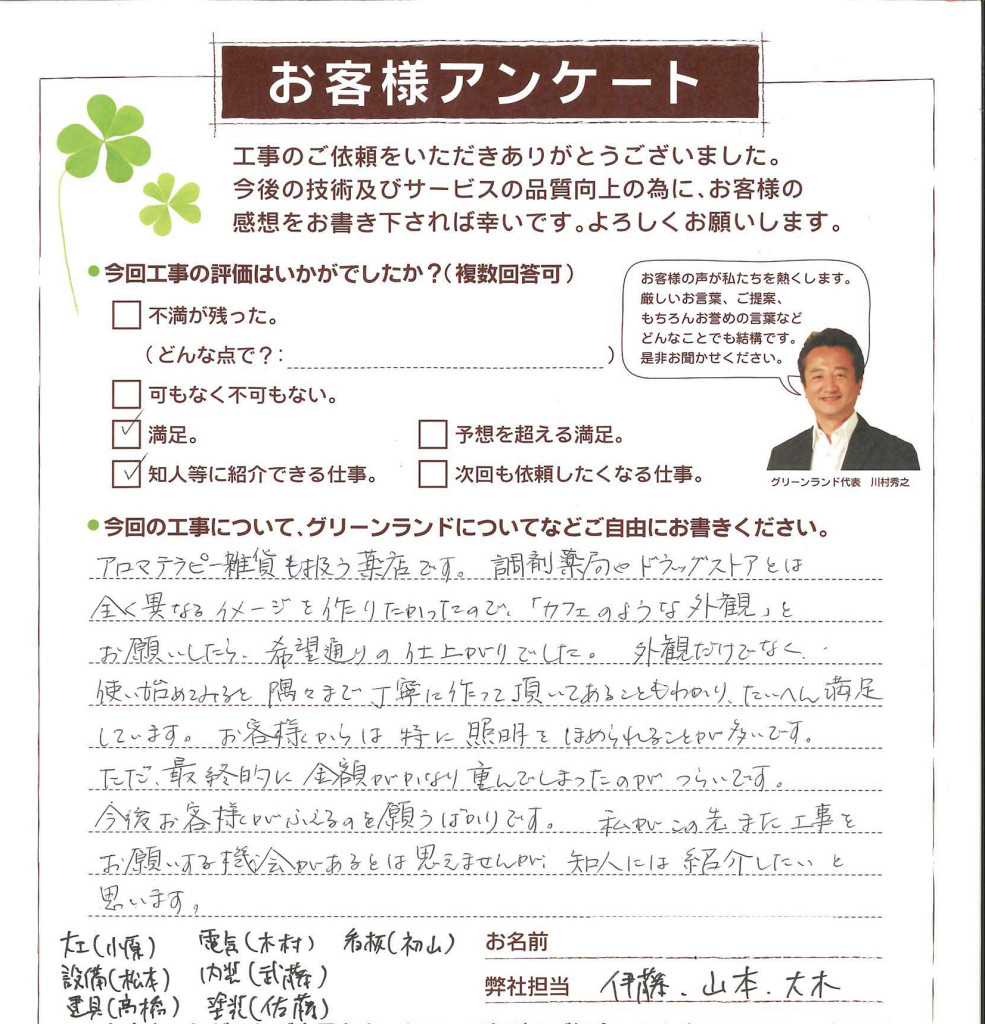 お客様アンケート
工事のご依頼をいただきありがとうございました。
今後の技術及びサービスの品質向上の為に、お客様の
感想をお書き下されば幸いです。よろしくお願いします。
●今回工事の評価はいかがでしたか?(複数回答可)
不満が残った。
(どんな点で?: )
可もなく不可もない。
満足。
予想を超える満足。
知人等に紹介できる仕事。
次回も依頼したくなる仕事。
お客様の声が私たちを熱くします。
厳しいお言葉、ご提案、
もちろんお誉めの言葉など
どんなことでも結構です。
是非お聞かせください。
グリーンランド代表 川村秀之
●今回の工事について、グリーンランドについてなどご自由にお書きください。
アロマテラピー雑貨も扱う薬店です。 調剤薬局やドラッグストアとは
全く異なるイメージを作りたかったので、「カフェのような外観」と
お願いしたら、希望通りの仕上がりでした。 外観だけでなく、
使い始めてみると隅々まで丁寧に作って頂いてあることもわかり、たいへん満足
しています。お客様からは特に照明をほめられることが多いです。
ただ、最終的に金額がかなり重んでしまったのがつらいです。
今後お客様がふえるのを願うばかりです。 私がこの先また工事を
お願いする機会があるとは思えませんが、知人には紹介したいと
思います。
大工(小原) 電気(木村) 看板(初山)
設備(松本) 内装(武藤)
建具(高橋) 塗装(佐藤)
お名前
弊社担当 伊藤、山本、大木